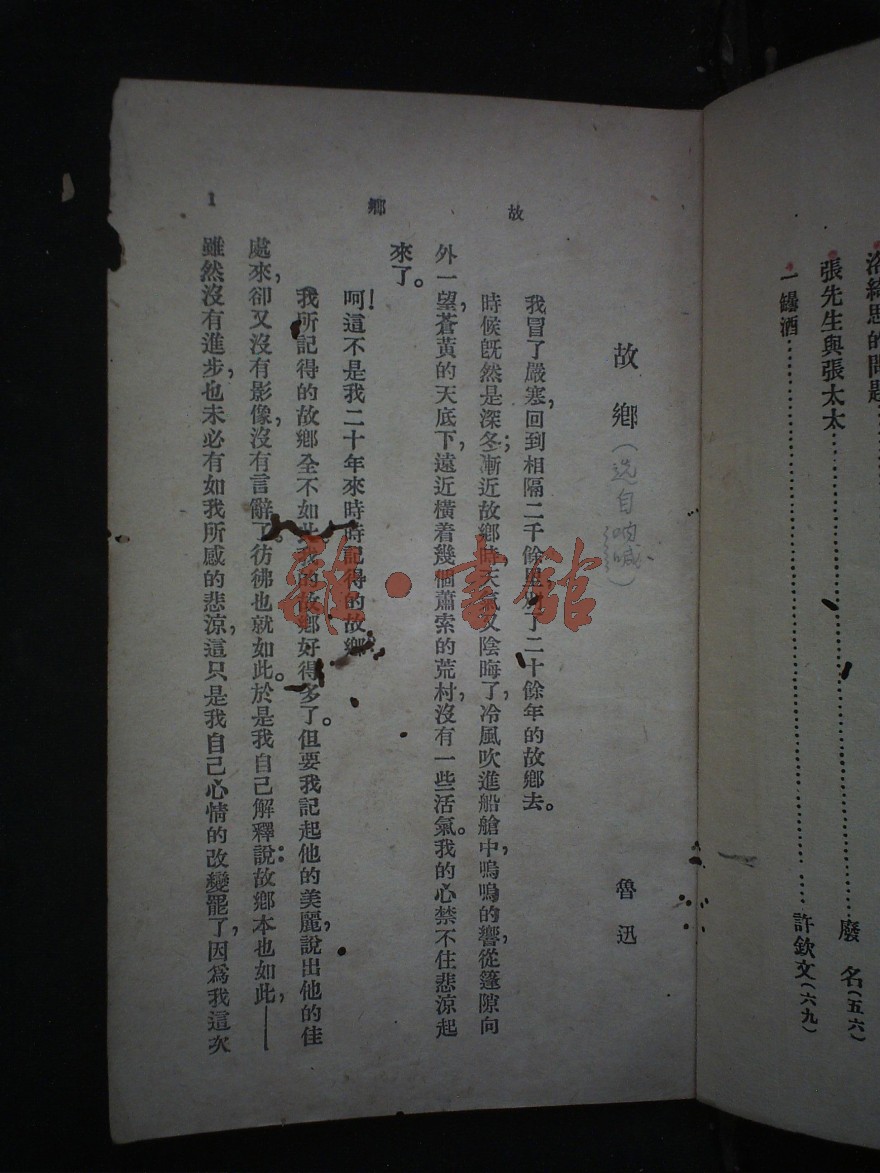 洛綺思的問題
張先生與張太太……廢名(五六)
一罎酒……許欽文(六九)
故鄉
1
故鄉(选自呐喊)
魯迅
我冒了嚴塞,回到相隔二千餘里,別了二十餘年的故鄉去。
時候旣然是深冬;漸近故鄉時,天氣又陰晦了,冷風吹進船艙中,嗚嗚的響,從篷隙向
外一望,蒼黃的天底下,遠近橫着幾個蕭索的荒村,沒有一些活氣。我的心禁不住悲涼起
來了。
呵!這不是我二十年來時時記得的故鄉
我所記得的故鄉全不如此。我的故鄉好得多了。但要我記起他的美麗,說出他的佳
處來,卻又沒有影像,沒有言辭了。彷彿也就如此。於是我自己解釋說:故鄉本也如此,——
雖然沒有進步,也未必有如我所感的悲涼,這只是我自己心情的改變罷了,因爲我這次
雜·書館